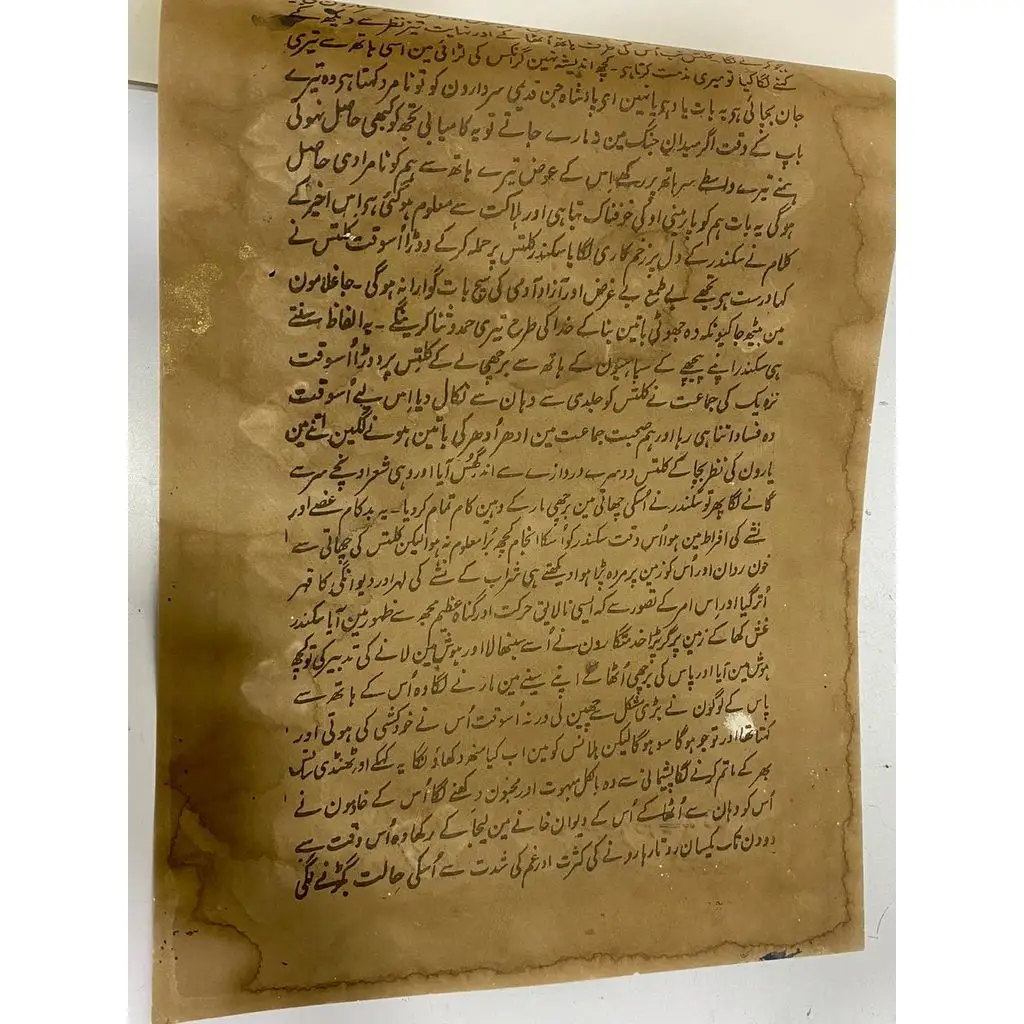 کہنے لگا کیا تو میری مذمت کرتا ہو۔ کچھ اندیشہ نہین گرانکس کی لڑائی مین اسی ہاتھ سے تیری
جان بچائی ہو یہ بات یاد ہو یا نہین ای بادشاہ جن قدیمی سردارون کو تو نامرد کہتا ہی وہ تیرے
باپ کے وقت اگر میدان جنگ مین نہ مارے جاتے تو یہ کامیابی تجھ کو کبھی حاصل نہوتی
ہمنے تیرے واسطے سر ہاتھ پر رکھے اس کے عوض تیرے ہاتھ سے ہم کو نامرادی حاصل
ہوگی یہ بات ہم کو پارمینی او کی خوفناک تباہی اور ہلاکت سے معلوم ہوگئی ہو اس اخیر کے
کلام نے سکندر کے دل پر زخم کاری لگایا سکندر کلتس پر حملہ کر کے دوڑا اُسوقت کلتس نے
کہا درست ہو تجھے بے طمع بے غرض اور آزاد آدمی کی سچ بات گوارا نہ ہوگی۔ جا غلامون
مین بیٹھ جا کیونکہ وہ جھوٹی باتین بنا کے خدا کی طرح تیری حمد و ثنا کرینگے۔ یہ الفاظ سنتے
ہی سکندر اپنے پیچھے کے سپاہیون کے ہاتھ سے برچھی لے کے کلتس پر دوڑا اُسوقت
نزدیک کی جماعت نے کلتس کو جلدی سے وہان سے نکال دیا اس لیے اُسوقت
وہ فساد اتنا ہی رہا اور ہم صحبت جماعت مین ادھر اُدھر کی باتین ہونے لگین اتنے مین
یارون کی نظر بچا کے کلتس دوسرے دروازے سے اندر گھس آیا اور وہی شعر اونچے سر سے
گانے لگا پھر تو سکندر نے اُسکی چھاتی مین برچھی مار کے وہین کام تمام کردیا۔ یہ بد کام غصے اور
نشے کی افراط مین ہوا اُس وقت سکندر کو اُسکا انجام کچھ بُرا معلوم نہ ہوا لیکن کلتس کی چھاتی سے
خون روان اور اُس کو زمین پر مردہ پڑا ہوا دیکھتے ہی شراب کے نشے کی لہر اور دیوانگی کا قہر
اُتر گیا اور اس امر کے تصور سے کہ ایسی نالایق حرکت اور گناہ عظیم مجھ سے ظہور مین آیا سکندر
غش کھا کے زمین پر گر پڑا خدمتگارون نے اُسے سنبھالا اور ہوش مین لانے کی تدبیر کی تو کچھ
ہوش مین آیا اور پاس کی برچھی اُٹھا کے اپنے سینے مین مارنے لگا وہ اُس کے ہاتھ سے
پاس کے لوگون نے بڑی مشکل سے چھین لی ورنہ اُسوقت اُس نے خودکشی کی ہوتی اور
کہتا تھا اور تو جو ہوگا سو ہوگا لیکن ہلانس کو مین اب کیا منھ دکھاؤ لگا یہ کہکے اور ٹھنڈی سانس
بھر کے ماتم کرنے لگا پشیمانی سے وہ بالکل مبہوت اور مجنون دکھنے لگا اُس کے خادمون نے
اُس کو وہان سے اُٹھا کے اُس کے دیوان خانے مین لیجا کے رکھا وہ اُس وقت سے
دو دن تک یکسان روتا رہا رونے کی کثرت اور غم کی شدت سے اُسکی حالت بگڑنے لگی